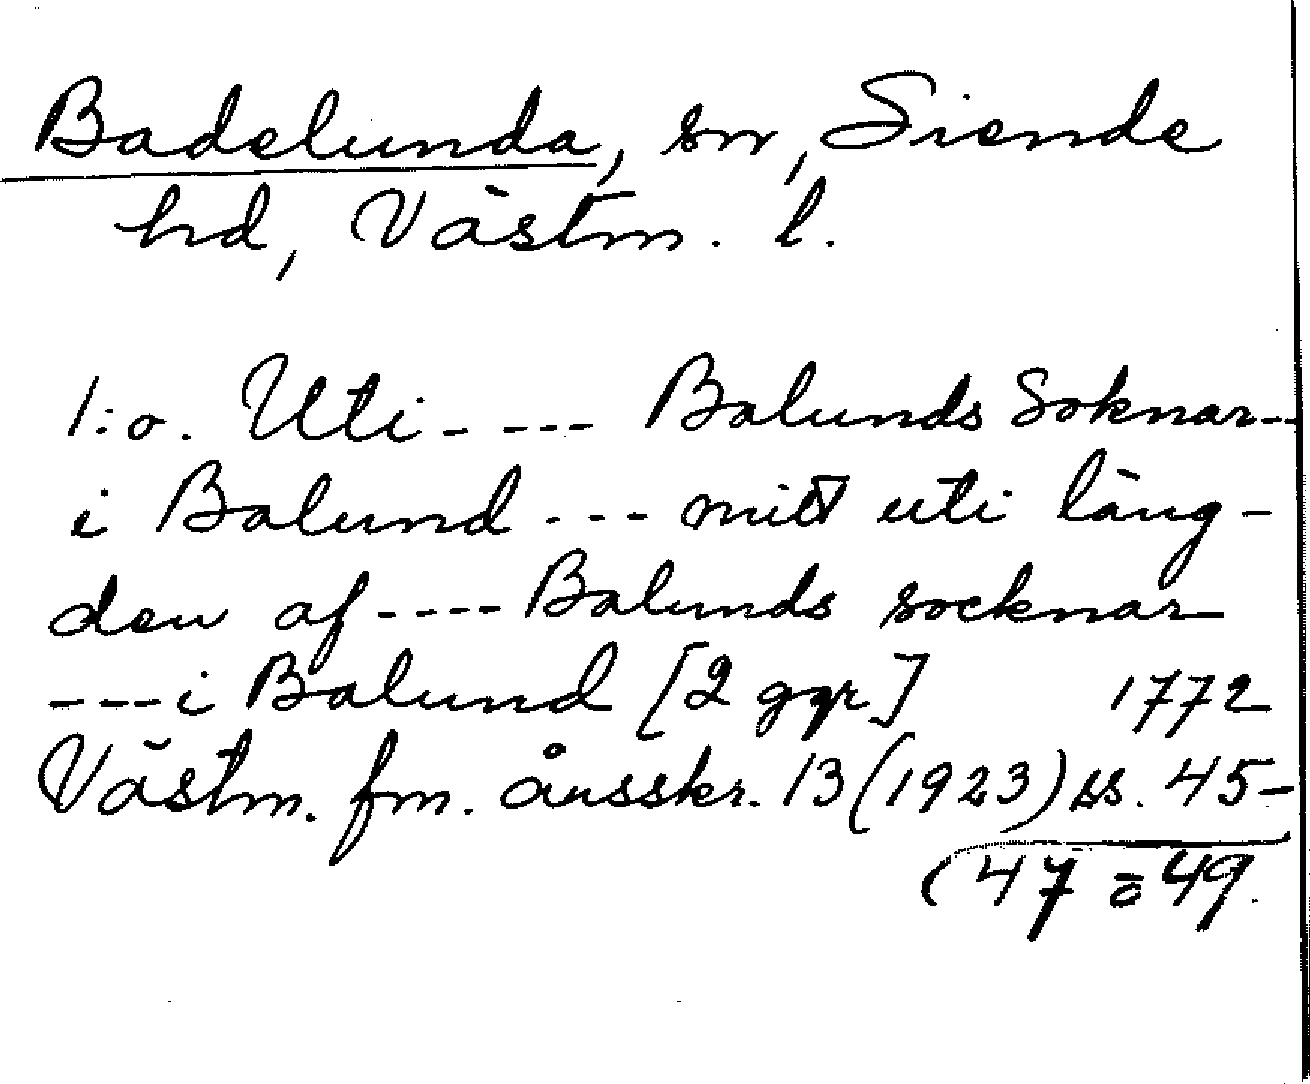 Badelunda, sn, Siende
hd, Västm. l.
1:o. Uti - - - - Balunds Soknar --
i Balund - - - mitt uti läng-
den af - - - - Balunds socknar
- - - i Balund [2 ggr] 1772
Västm. fm. årsskr. 13 (1923) ss. 45-
(47 o 49.